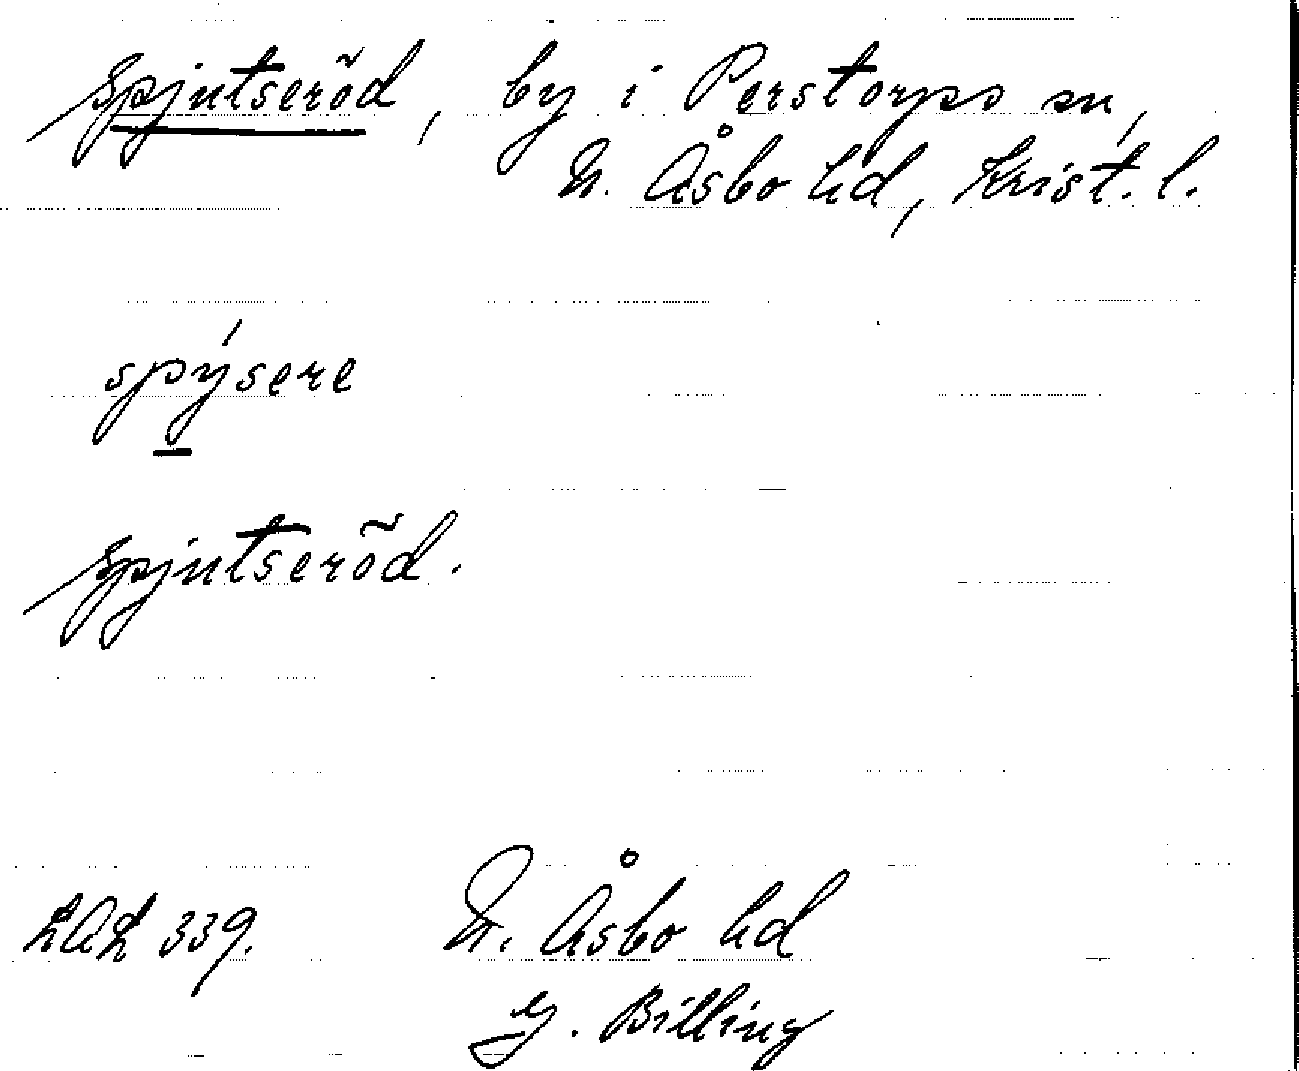 Spjutseröd, by i Perstorps sn,
N. Åsbo hd, Krist. l.
spýsere
Spjutseröd.
LAL 339.
N. Åsbo hd
G. Billing